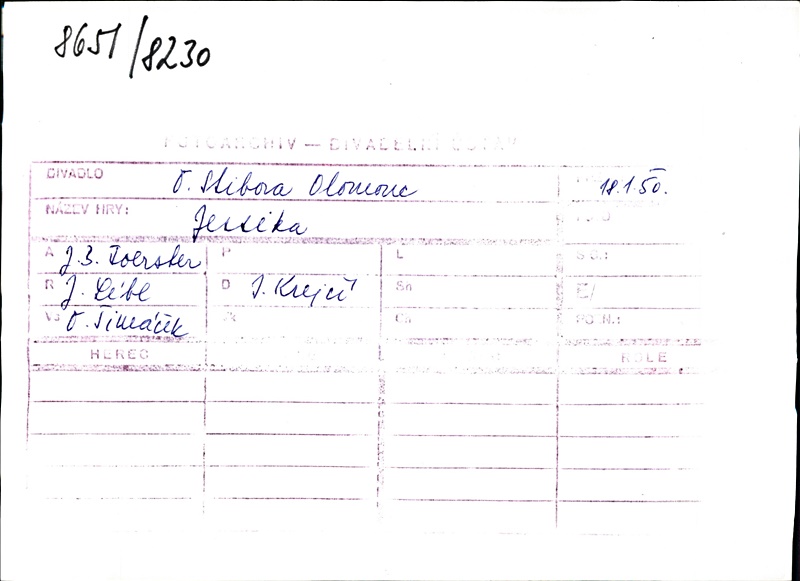 8651/8230
FOTOARCHIV — DIVADELNÍ ÚSTAV
DIVADLO O. Stibora Olomouc 18.1.50.
NÁZEV HRY: Jessika
A J. B. Foerster P L
R J. Lébl D I. Krejčí Sn
O. Šimáček Ch POZN.:
HEREC ROLE